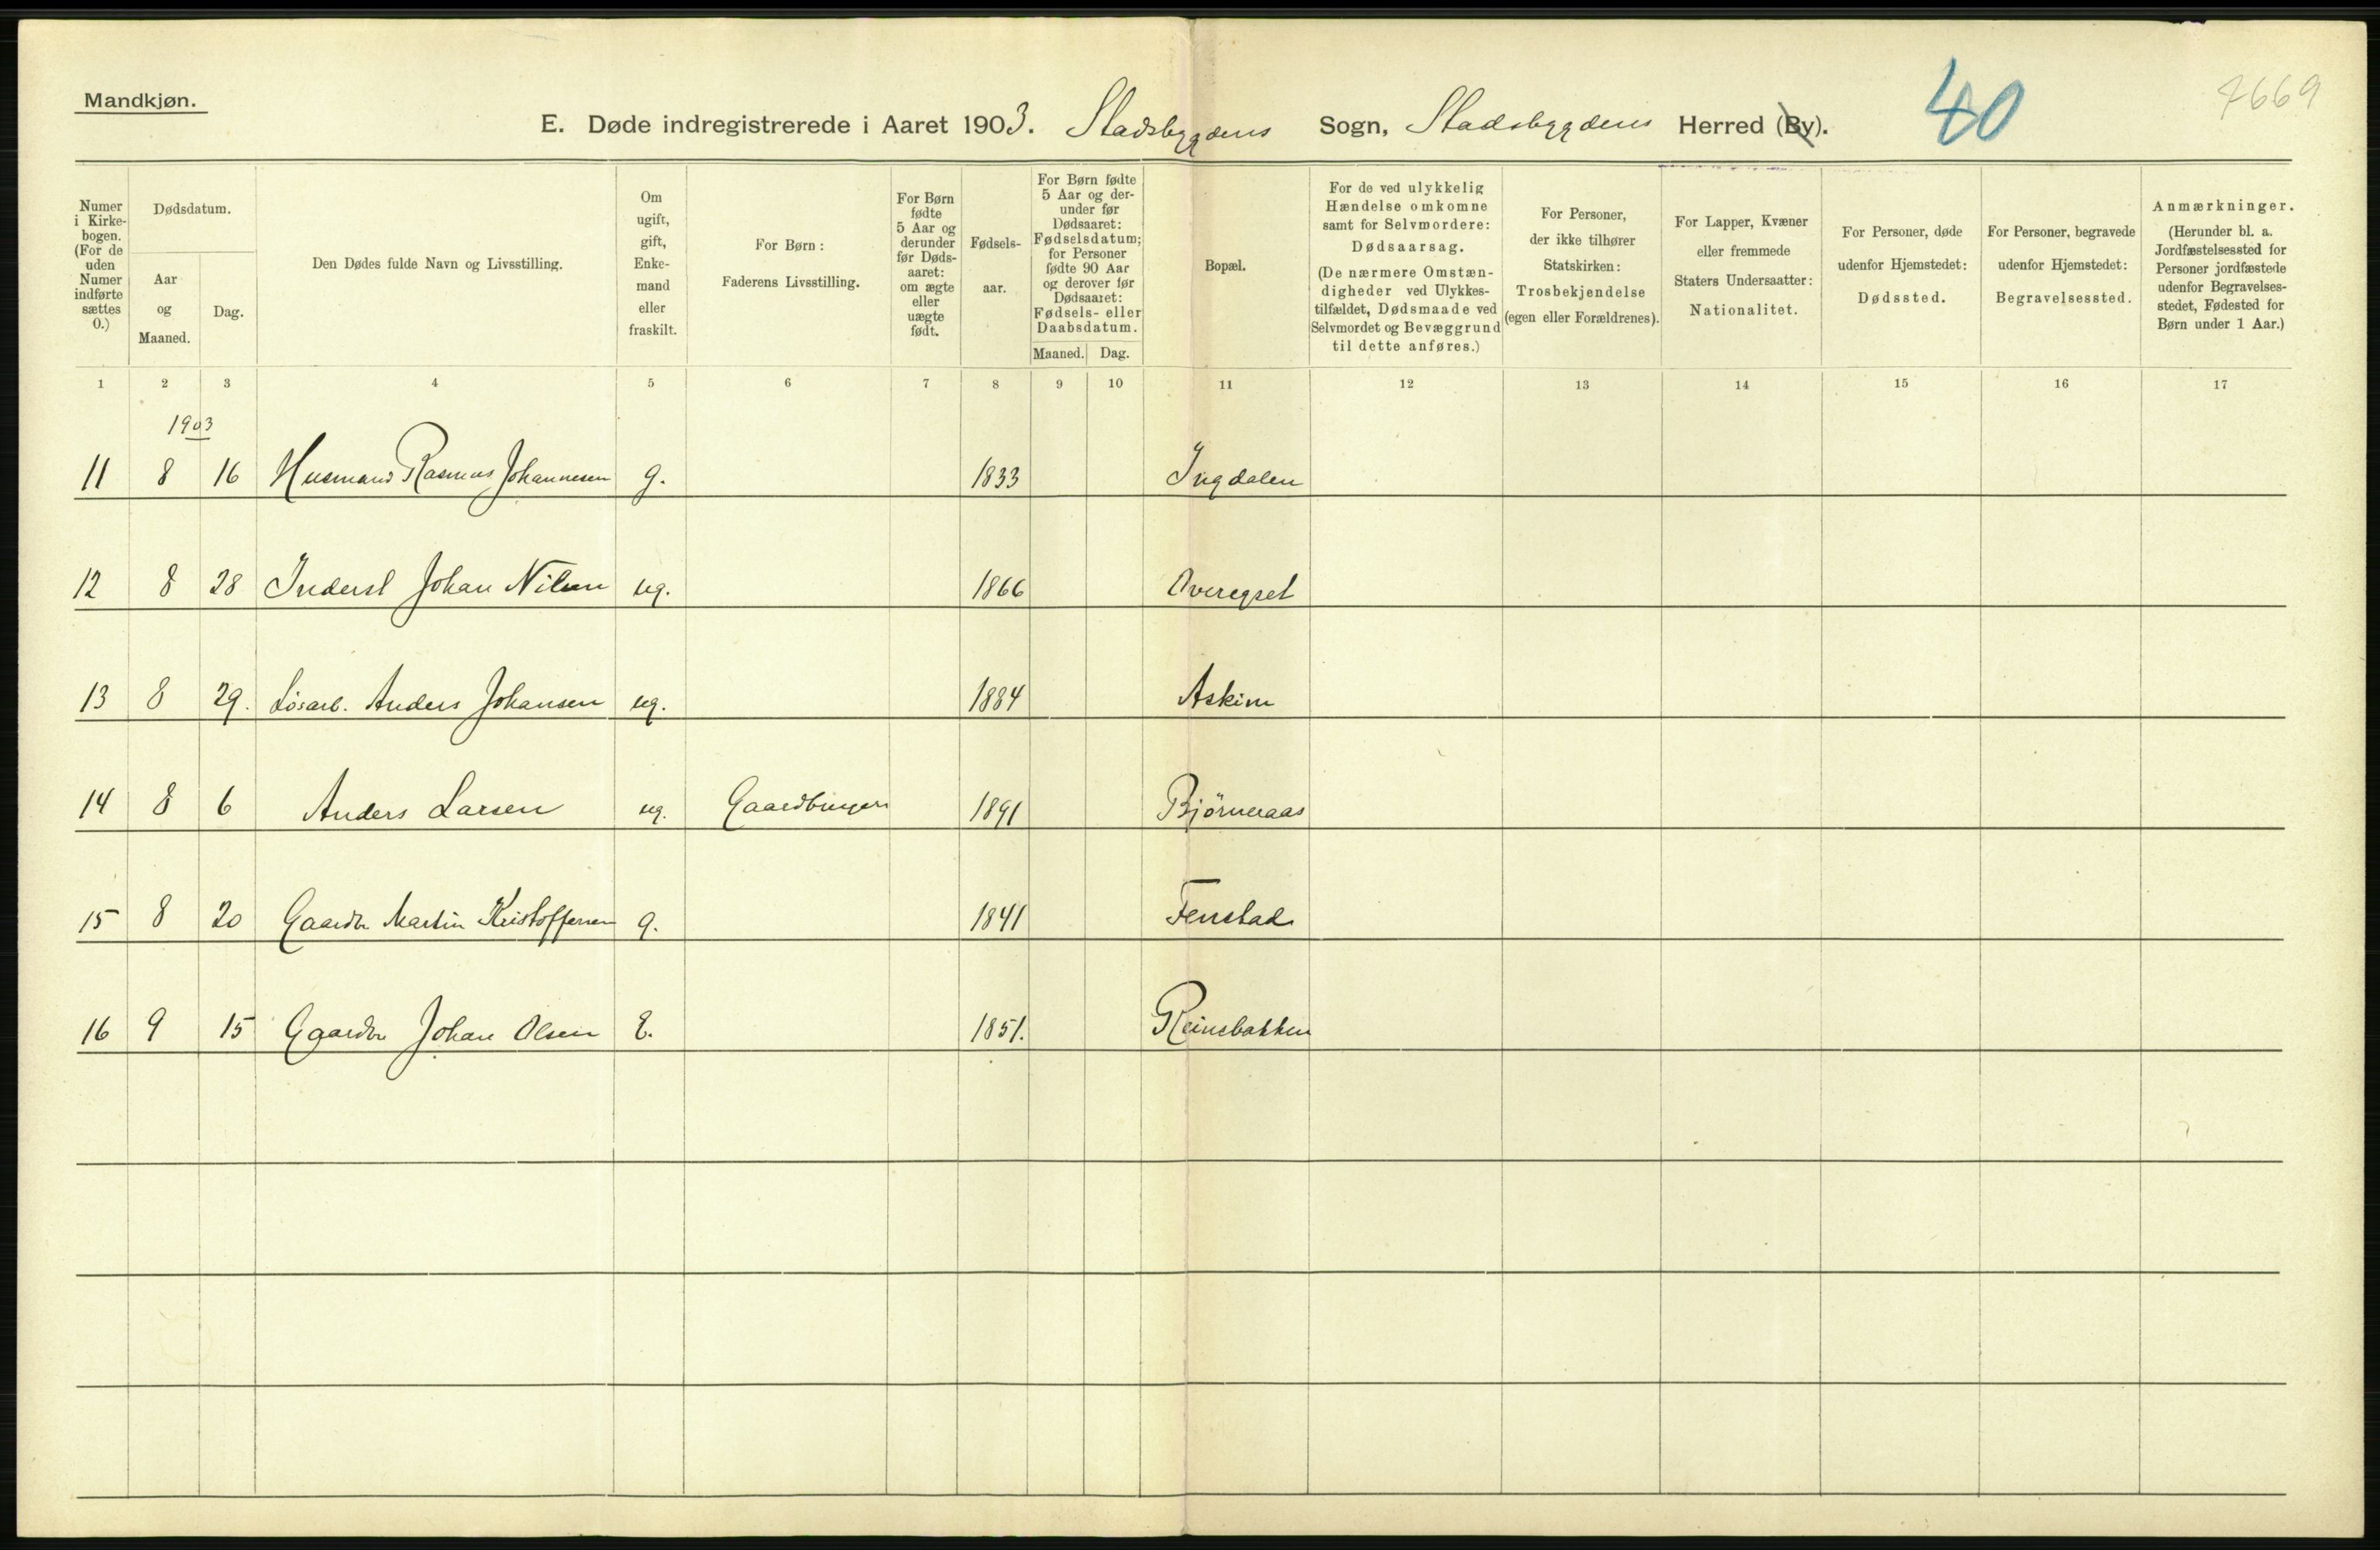 Mandkjøn.
40
7669
E. Døde indregistrerede i Aaret 1903. Stadsbygdens Sogn, Stadsbygdens Herred (By).
Numer i Kirkebogen. (For de uden Numer indførte sættes 0.)
Dødsdatum.
Aar og Maaned.
Dag.
Den Dødes fulde Navn og Livsstilling.
Om ugift, gift, Enkemand eller fraskilt.
For Børn: Faderens Livsstilling.
For Børn fødte 5 Aar og derunder før Dødsaaret: om ægte eller uægte født.
Fødselsaar.
For Børn fødte 5 Aar og derunder før Dødsaaret: Fødselsdatum; for Personer fødte 90 Aar og derover før Dødsaaret: Fødsels- eller Daabsdatum.
Maaned. Dag.
Bopæl.
For de ved ulykkelig Hændelse omkomne samt for Selvmordere: Dødsaarsag. (De nærmere Omstændigheder ved Ulykkestilfældet, Dødsmaade ved Selvmordet og Bevæggrund til dette anføres.)
For Personer, der ikke tilhører Statskirken: Trosbekjendelse (egen eller Forældrenes).
For Lapper, Kvæner eller fremmede Staters Undersaatter: Nationalitet.
For Personer, døde udenfor Hjemstedet: Dødssted.
For Personer, begravede udenfor Hjemstedet: Begravelsessted.
Anmærkninger. (Herunder bl. a. Jordfæstelsessted for Personer jordfæstede udenfor Begravelsesstedet, Fødested for Børn under 1 Aar.)
1 2 3 4 5 6 7 8 9 10 11 12 13 14 15 16 17
1903
11 8 16 Husmand Rasmus Johannesen g. 1833 Ingdalen
12 8 28 Inderst Johan Nilsen ug. 1866 Overegset
13 8 29. Løsarb. Anders Johansen ug. 1884 Askim
14 8 6 Anders Larsen ug. Gaardbruger 1891 Bjørneraas
15 8 20 Gaardbr Martin Kristoffersen g. 1841 Fenstad
16 9 15 Gaardbr Johan Olsen E. 1851. Reinsbakken